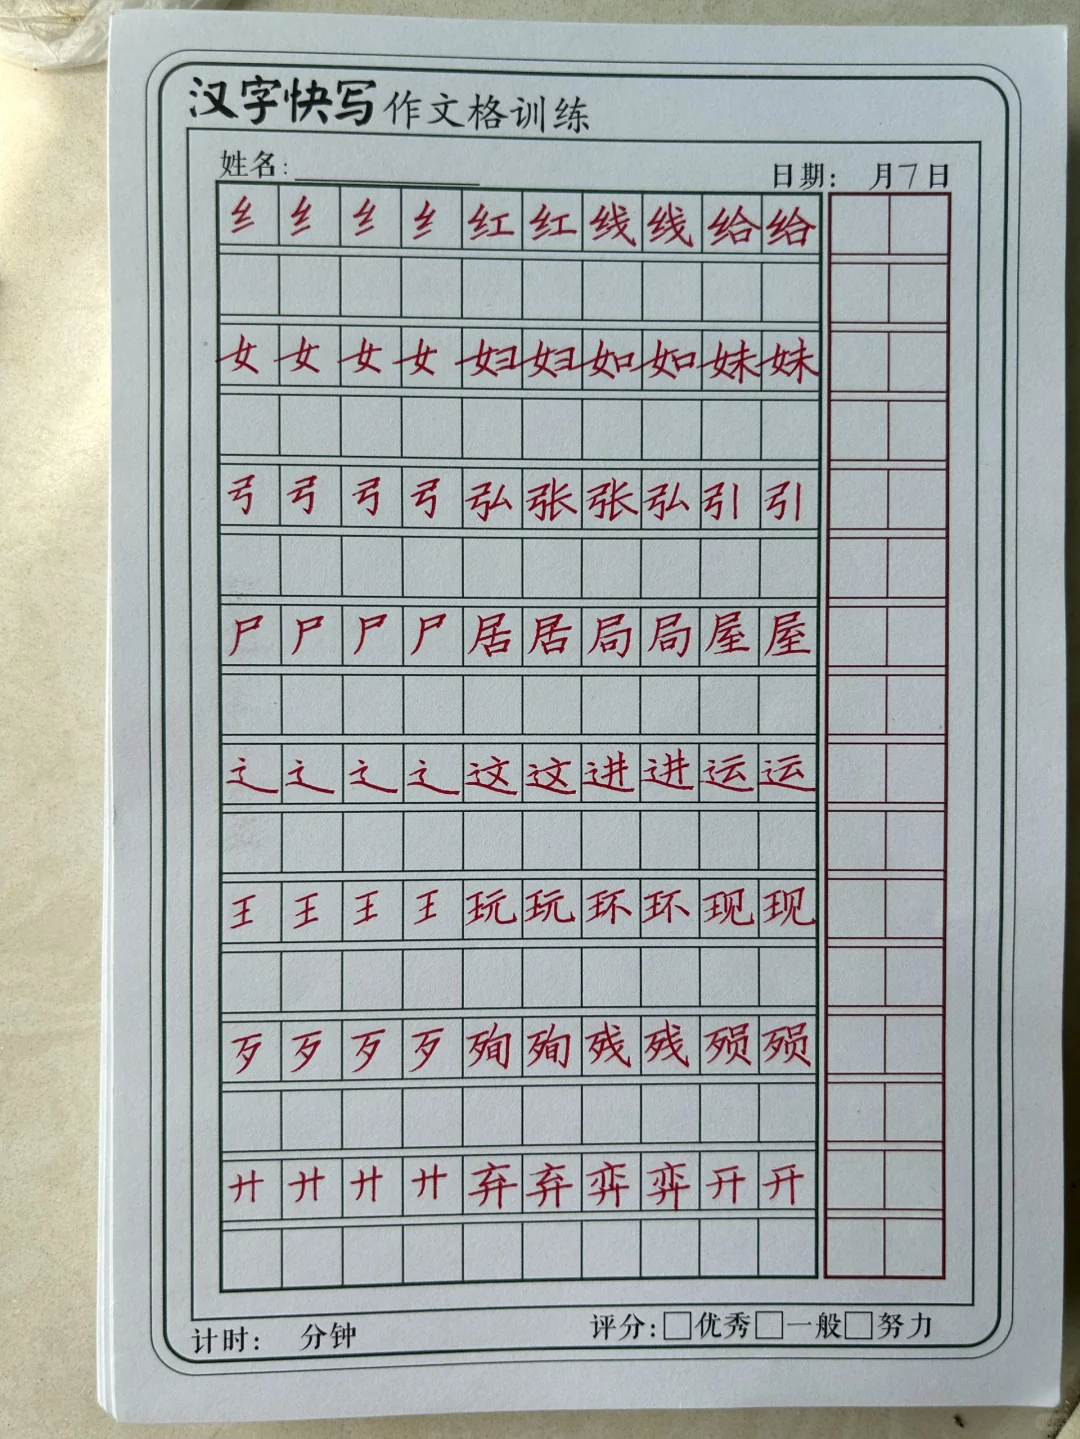 汉字快写作文格训练
姓名:
日期: 月7日
纟纟纟纟红红线线给给
女女女女妇妇如如妹妹
弓弓弓弓弘张张弘引引
尸尸尸尸居居局局屋屋
辶辶辶辶这这进进运运
王王王王玩玩环环现现
歹歹歹歹殉殉残残殒殒
廾廾廾廾弃弃弈弈开开
计时: 分钟
评分:□优秀□一般□努力